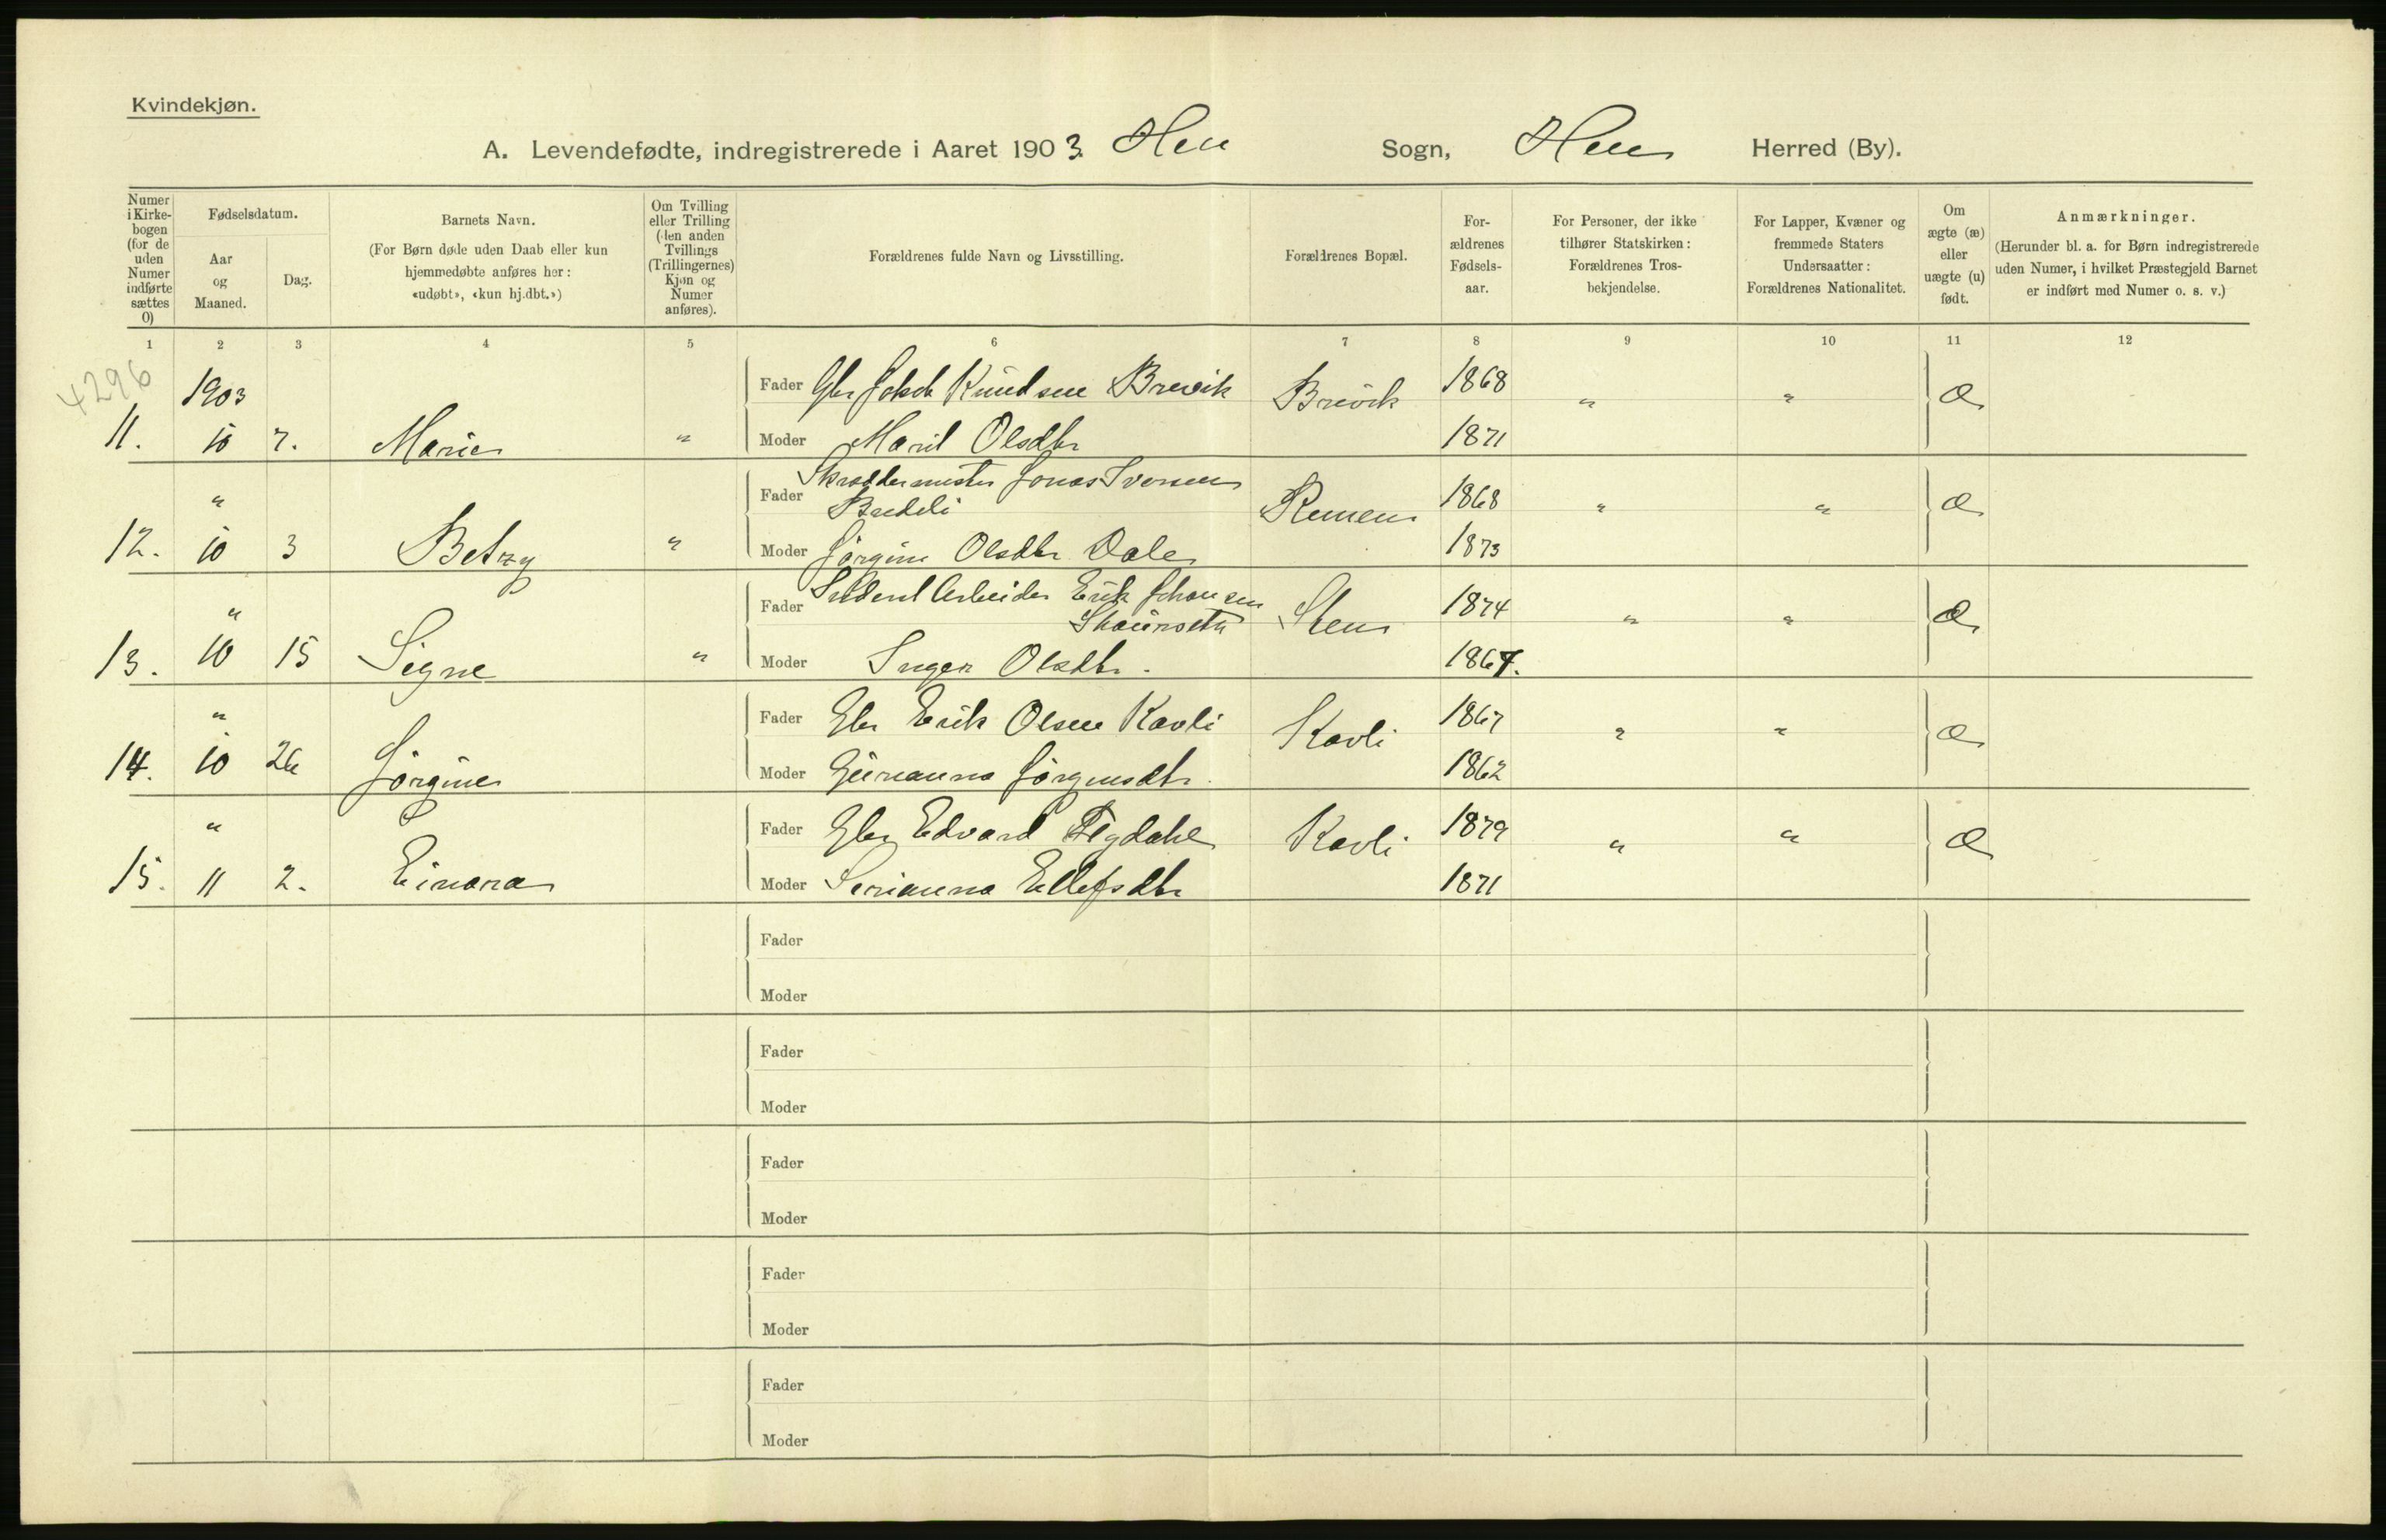 Kvindekjøn.
A. Levendefødte, indregistrerede i Aaret 1903. Hen Sogn, Hen Herred (By).
Numer i Kirke-bogen (for de uden Numer indførte sættes 0)
Fødselsdatum.
Aar og Maaned.
Dag.
Barnets Navn.
(For Børn døde uden Daab eller kun
hjemmedøbte anføres her:
«udøbt», «kun hj.dbt.»)
Om Tvilling
eller Trilling
(den anden
Tvillings
(Trillingernes)
Kjøn og
Numer
anføres).
Forældrenes fulde Navn og Livsstilling.
Forældrenes Bopæl.
For-
ældrenes
Fødsels-
aar.
For Personer, der ikke
tilhører Statskirken:
Forældrenes Tros-
bekjendelse.
For Lapper, Kvæner og
fremmede Staters
Undersaatter:
Forældrenes Nationalitet.
Om
ægte (æ)
eller
uægte (u)
født.
Anmærkninger.
(Herunder bl. a. for Børn indregistrerede
uden Numer, i hvilket Præstegjeld Barnet
er indført med Numer o. s. v.)
1 2 3 4 5 6 7 8 9 10 11 12
4296
1903 Fader Gbr Knudsen Brevik Brevik 1868 " " æ
11. 10 7. Marie " Moder Marit Olsdtr 1871
" Fader Skræddermester Jonas Iversen
Bredeli Remen 1868 " " æ
12. 10 3 Betzy " Moder Jørgine Olsdtr Dale 1873
" Fader Arbeider Erik Johansen
Sten 1874 " " æ
13. 10 15 Signe " Moder Inger Olsdtr. 1867.
" Fader Gbr Erik Olsen Kavli Kavli 1867 " " æ
14. 10 26 Jørgine Moder Gurianna Jørgensdtr. 1862
" Fader Gbr Edvard Kavli 1879 " " æ
15. 11 2. Einara Moder Serianna Ellefsdtr 1871
Fader
Moder
Fader
Moder
Fader
Moder
Fader
Moder
Fader
Moder